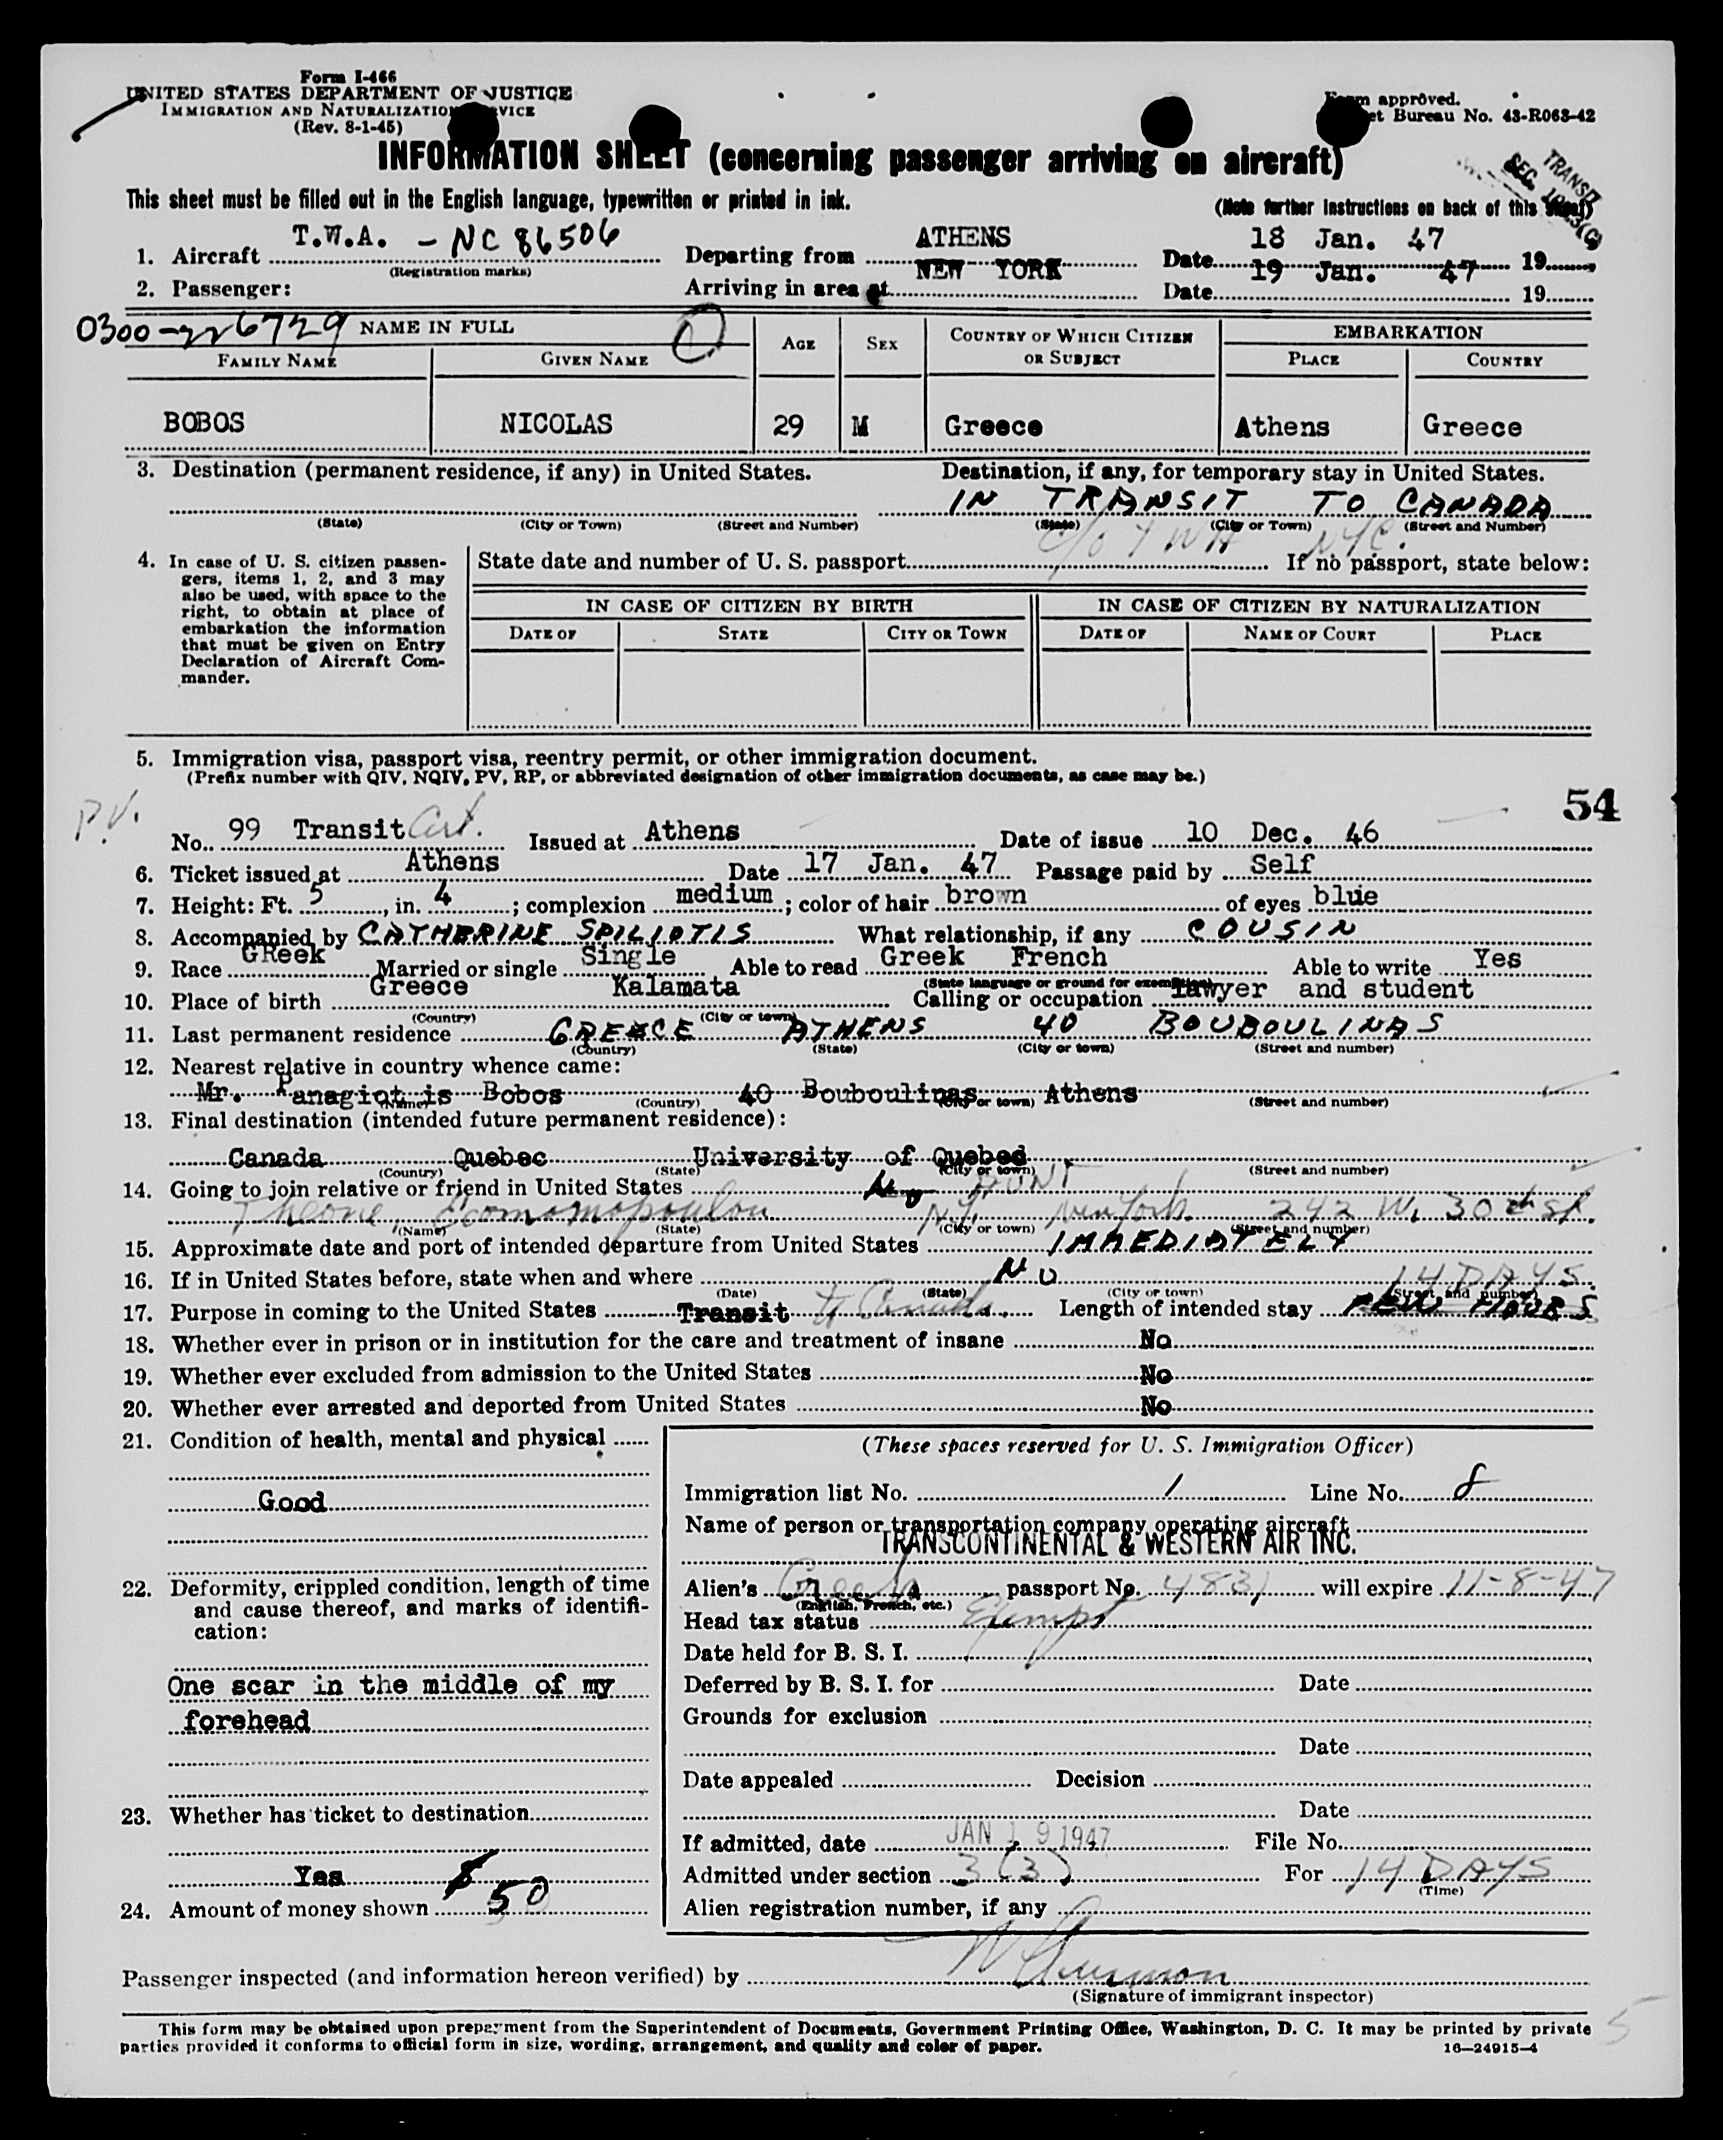 Form I-466
UNITED STATES DEPARTMENT OF JUSTICE
IMMIGRATION AND NATURALIZATION SERVICE
(Rev. 8-1-45)
Form approved.
Budget Bureau No. 43-R063-42
INFORMATION SHEET (concerning passenger arriving on aircraft)
TRANSIT
SEC.
This sheet must be filled out in the English language, typewritten or printed in ink.
(Note further instructions on back of this sheet)
1. Aircraft T.W.A. - NC 86506 Departing from ATHENS Date 18 Jan. 47 19
(Registration marks)
2. Passenger: Arriving in area at NEW YORK Date 19 Jan. 47 19
0300-
6729 NAME IN FULL
FAMILY NAME GIVEN NAME AGE SEX COUNTRY OF WHICH CITIZEN OR SUBJECT EMBARKATION PLACE COUNTRY
BOBOS NICOLAS 29 M Greece Athens Greece
3. Destination (permanent residence, if any) in United States. Destination, if any, for temporary stay in United States.
IN TRANSIT TO CANADA
(State) (City or Town) (Street and Number) (State) (City or Town) (Street and Number)
c/o TWA NYC.
4. In case of U. S. citizen passengers, items 1, 2, and 3 may also be used, with space to the right, to obtain at place of embarkation the information that must be given on Entry Declaration of Aircraft Commander.
State date and number of U. S. passport If no passport, state below:
IN CASE OF CITIZEN BY BIRTH IN CASE OF CITIZEN BY NATURALIZATION
DATE OF STATE CITY OR TOWN DATE OF NAME OF COURT PLACE
5. Immigration visa, passport visa, reentry permit, or other immigration document.
(Prefix number with QIV, NQIV, PV, RP, or abbreviated designation of other immigration documents, as case may be.)
54
P.V.
No. 99 Transit Cert. Issued at Athens Date of issue 10 Dec. 46
6. Ticket issued at Athens Date 17 Jan. 47 Passage paid by Self
7. Height: Ft. 5, in. 4; complexion medium; color of hair brown of eyes blue
8. Accompanied by CATHERINE SPILIOTIS What relationship, if any COUSIN
9. Race GReek Married or single Single Able to read Greek French Able to write Yes
(State language or ground for exemption)
10. Place of birth Greece Kalamata Calling or occupation lawyer and student
(Country) (City or town)
11. Last permanent residence GREECE ATHENS 40 BOUBOULINAS
(Country) (State) (City or town) (Street and number)
12. Nearest relative in country whence came:
Mr. Panagiotis Bobos 40 Bouboulinas Athens
(Name) (Country) (City or town) (Street and number)
13. Final destination (intended future permanent residence):
Canada Quebec University of Quebec
(Country) (State) (City or town) (Street and number)
14. Going to join relative or friend in United States No AUNT
Theone Economopoulou N.Y. New York 242 W. 30th St.
(Name) (State) (City or town) (Street and number)
15. Approximate date and port of intended departure from United States IMMEDIATELY
16. If in United States before, state when and where NO
(Date) (State) (City or town) (Street and number)
14 DAYS
17. Purpose in coming to the United States Transit to Canada. Length of intended stay FEW HOURS
18. Whether ever in prison or in institution for the care and treatment of insane No
19. Whether ever excluded from admission to the United States No
20. Whether ever arrested and deported from United States No
21. Condition of health, mental and physical
Good
22. Deformity, crippled condition, length of time and cause thereof, and marks of identification:
One scar in the middle of my
forehead
23. Whether has ticket to destination
Yes
24. Amount of money shown $50
(These spaces reserved for U. S. Immigration Officer)
Immigration list No. 1 Line No. 8
Name of person or transportation company operating aircraft
TRANSCONTINENTAL & WESTERN AIR INC.
Alien's Greek passport No. 4831 will expire 11-8-47
(English, French, etc.)
Head tax status Exempt
Date held for B. S. I.
Deferred by B. S. I. for Date
Grounds for exclusion
Date
Date appealed Decision
Date
If admitted, date JAN 19 1947 File No.
Admitted under section 3(3) For 14 DAYS
(Time)
Alien registration number, if any
Passenger inspected (and information hereon verified) by
(Signature of immigrant inspector)
This form may be obtained upon prepayment from the Superintendent of Documents, Government Printing Office, Washington, D. C. It may be printed by private
parties provided it conforms to official form in size, wording, arrangement, and quality and color of paper.
16—24915-4
5